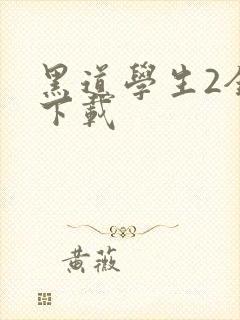 黑道學生2全
下載
黄薇